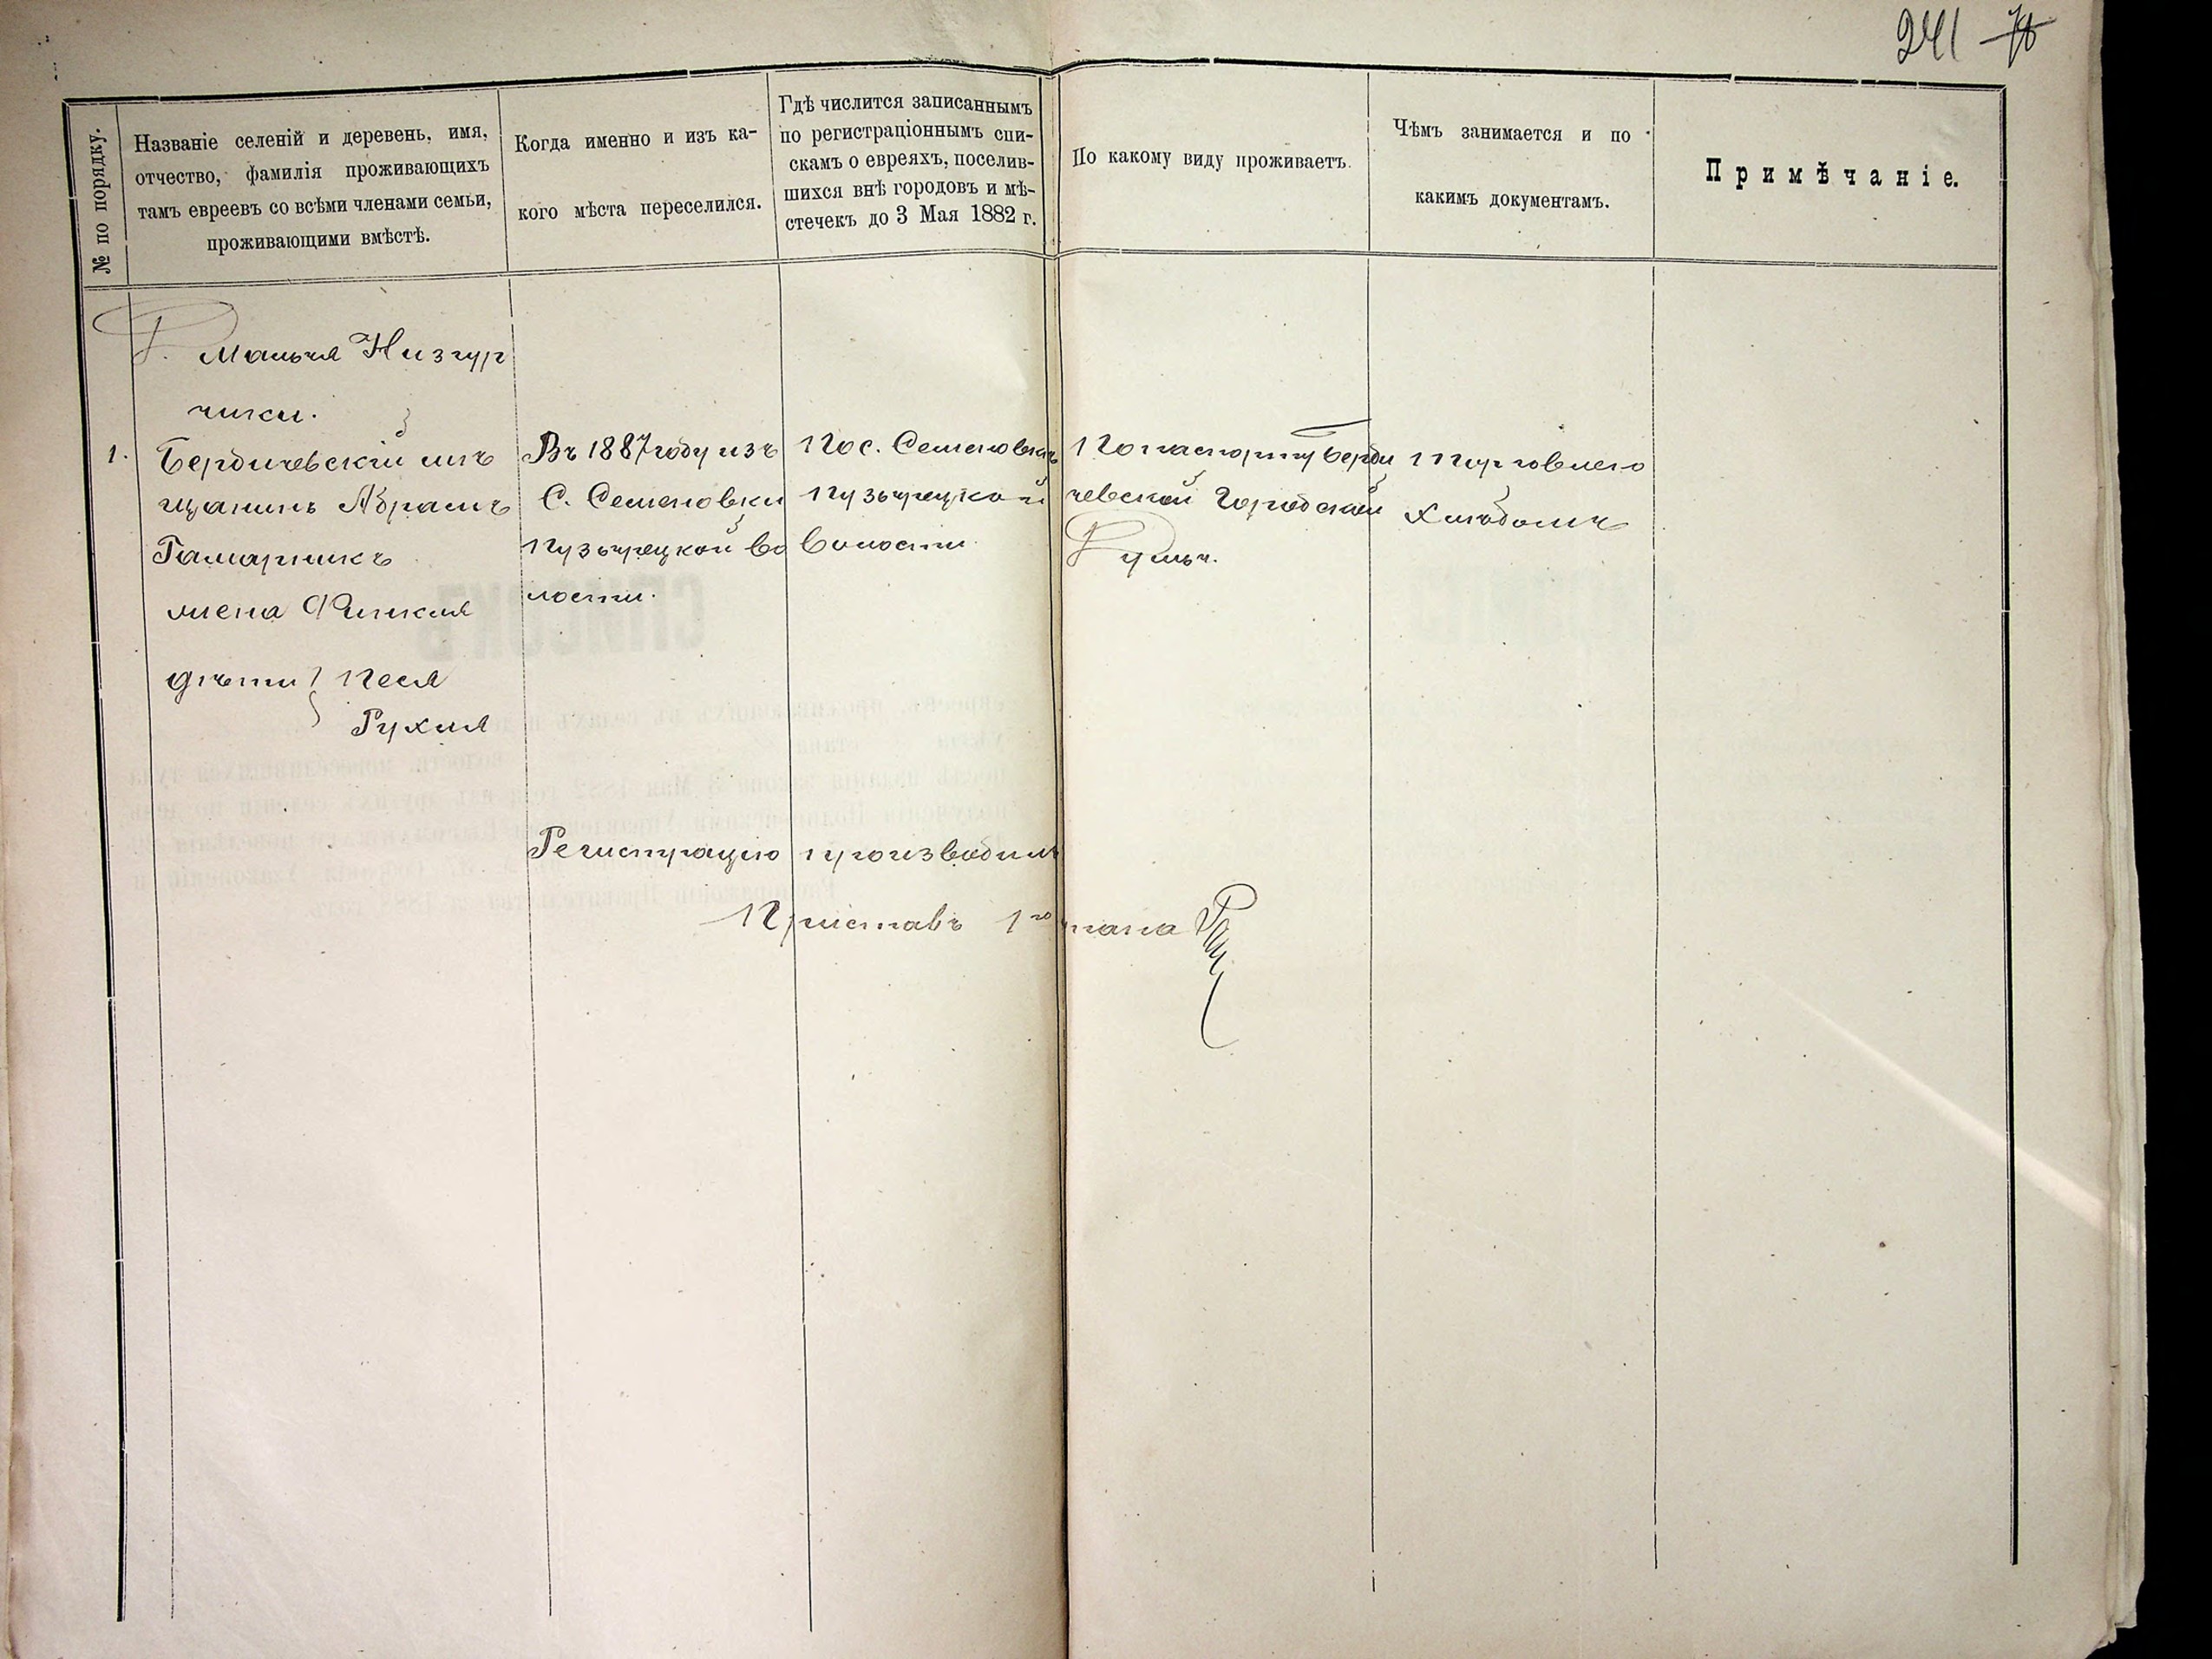 241
№ по порядку.
Названіе селеній и деревень, имя,
отчество, фамилія проживающихъ
тамъ евреевъ со всѣми членами семьи,
проживающими вмѣстѣ.
Когда именно и изъ ка-
кого мѣста переселился.
Гдѣ числится записаннымъ
по регистраціоннымъ спи-
скамъ о евреяхъ, поселив-
шихся внѣ городовъ и мѣ-
стечекъ до 3 Мая 1882 г.
По какому виду проживаетъ.
Чѣмъ занимается и по
какимъ документамъ.
Примѣчаніе.
Малыя Низгур
чики.
1.
Бердичевскій мѣ
щанинъ Абрамъ
Гамарникъ
жена Финкля
дѣти Песя
Рухля
Въ 1887 году изъ
С. Семеновки
Пузырецкой во
лости.
По с. Семеновкѣ
Пузырецкой
волости.
По паспорту Берди
чевской Городской
Думы.
Торговлею
хлѣбомъ
Регистрацію производилъ
Приставъ 1го стана
СПИСОКЪ